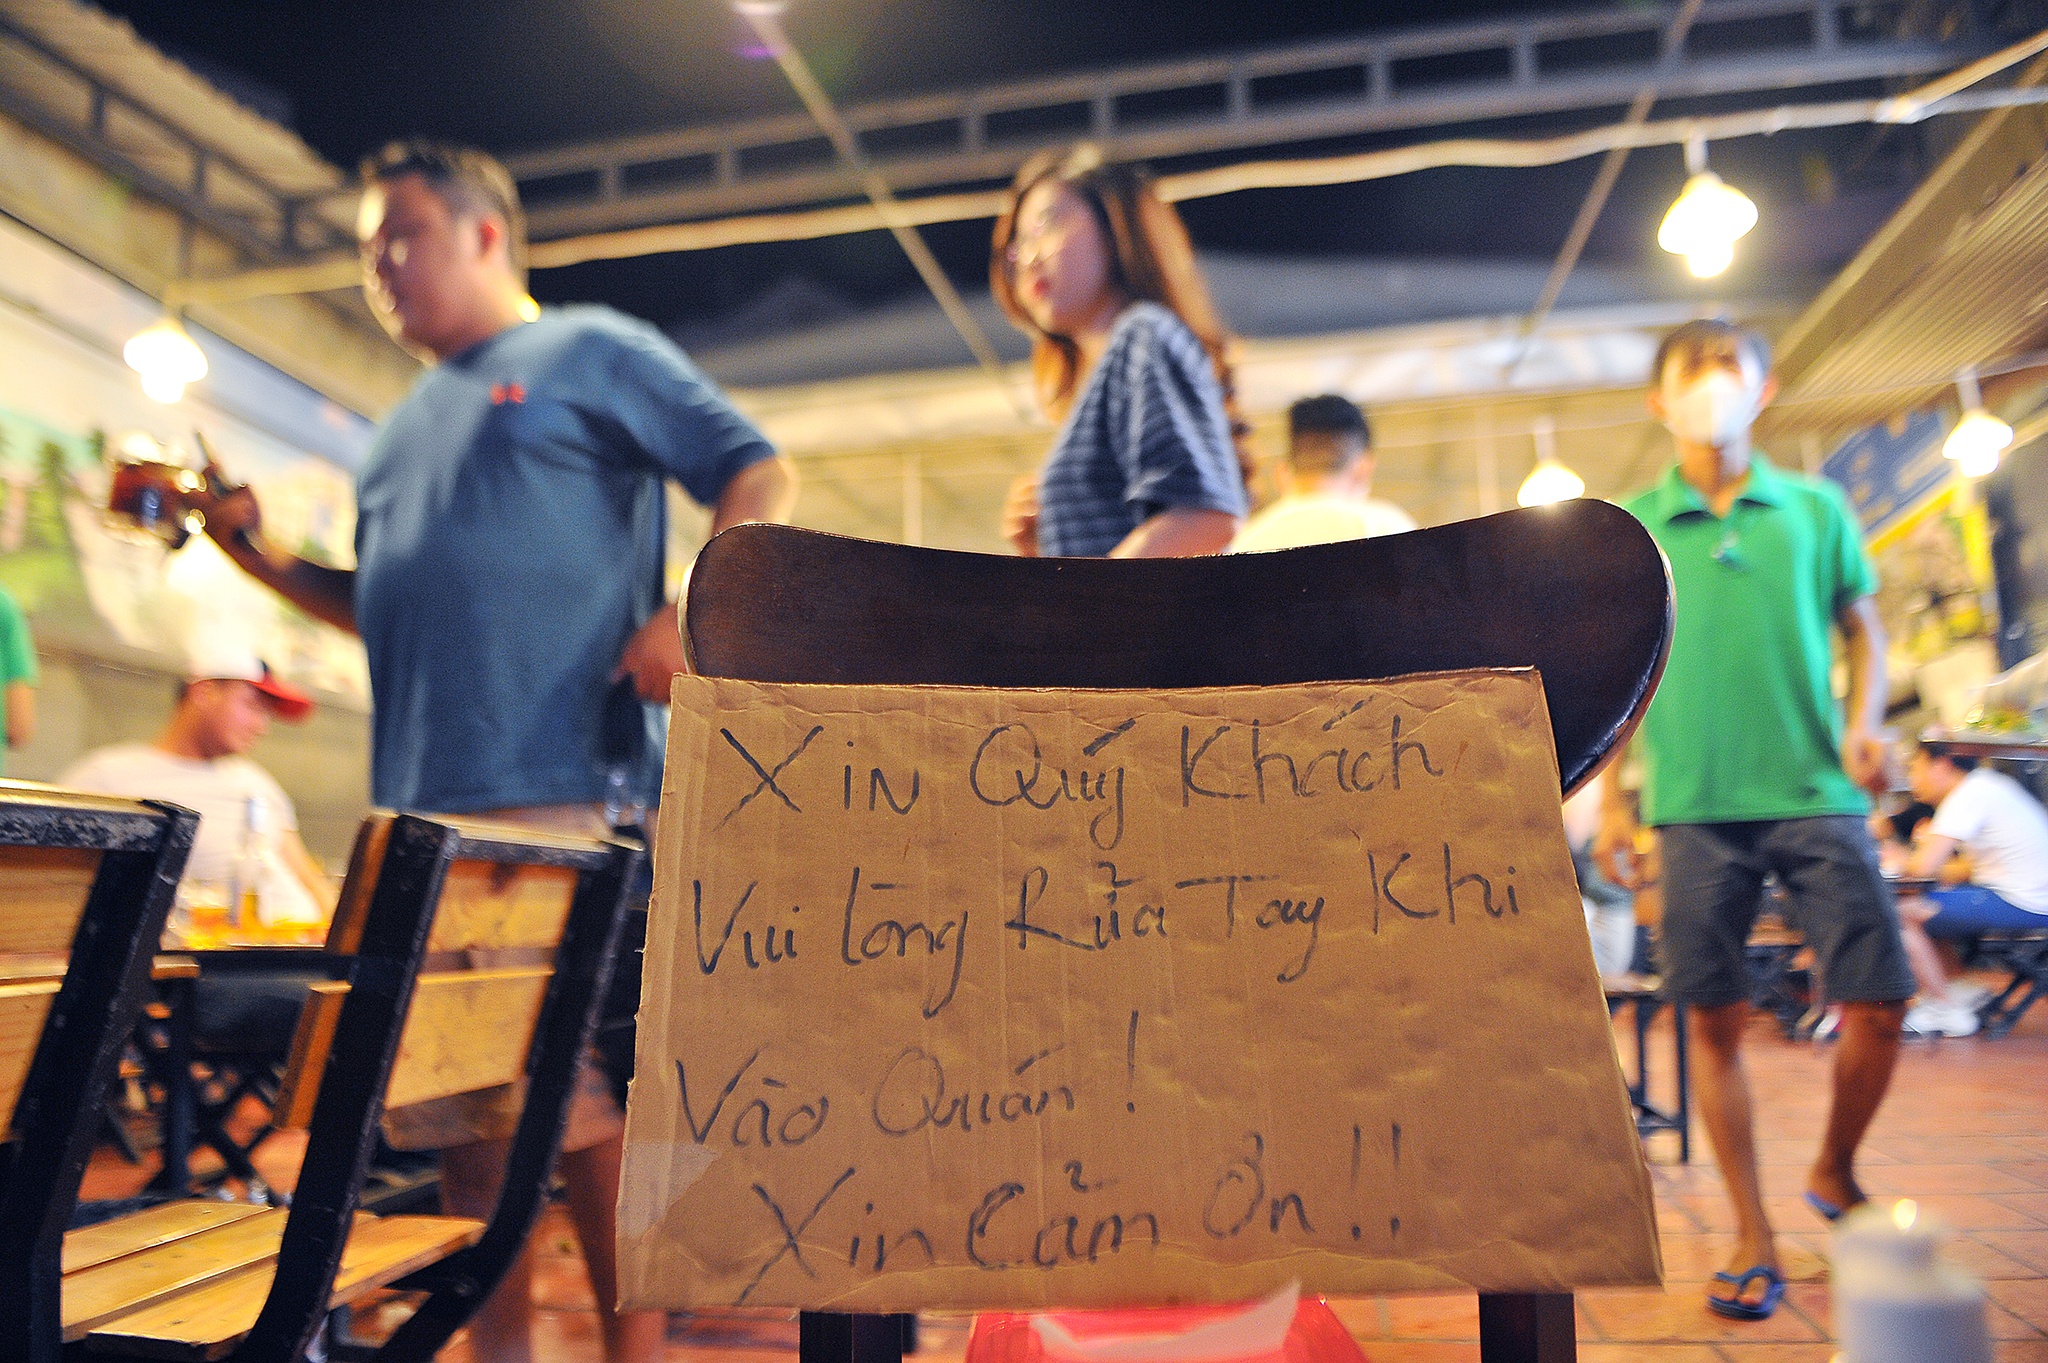 Xin Quý Khách
Vui lòng Rửa Tay Khi
Vào Quán !
Xin Cảm Ơn !!